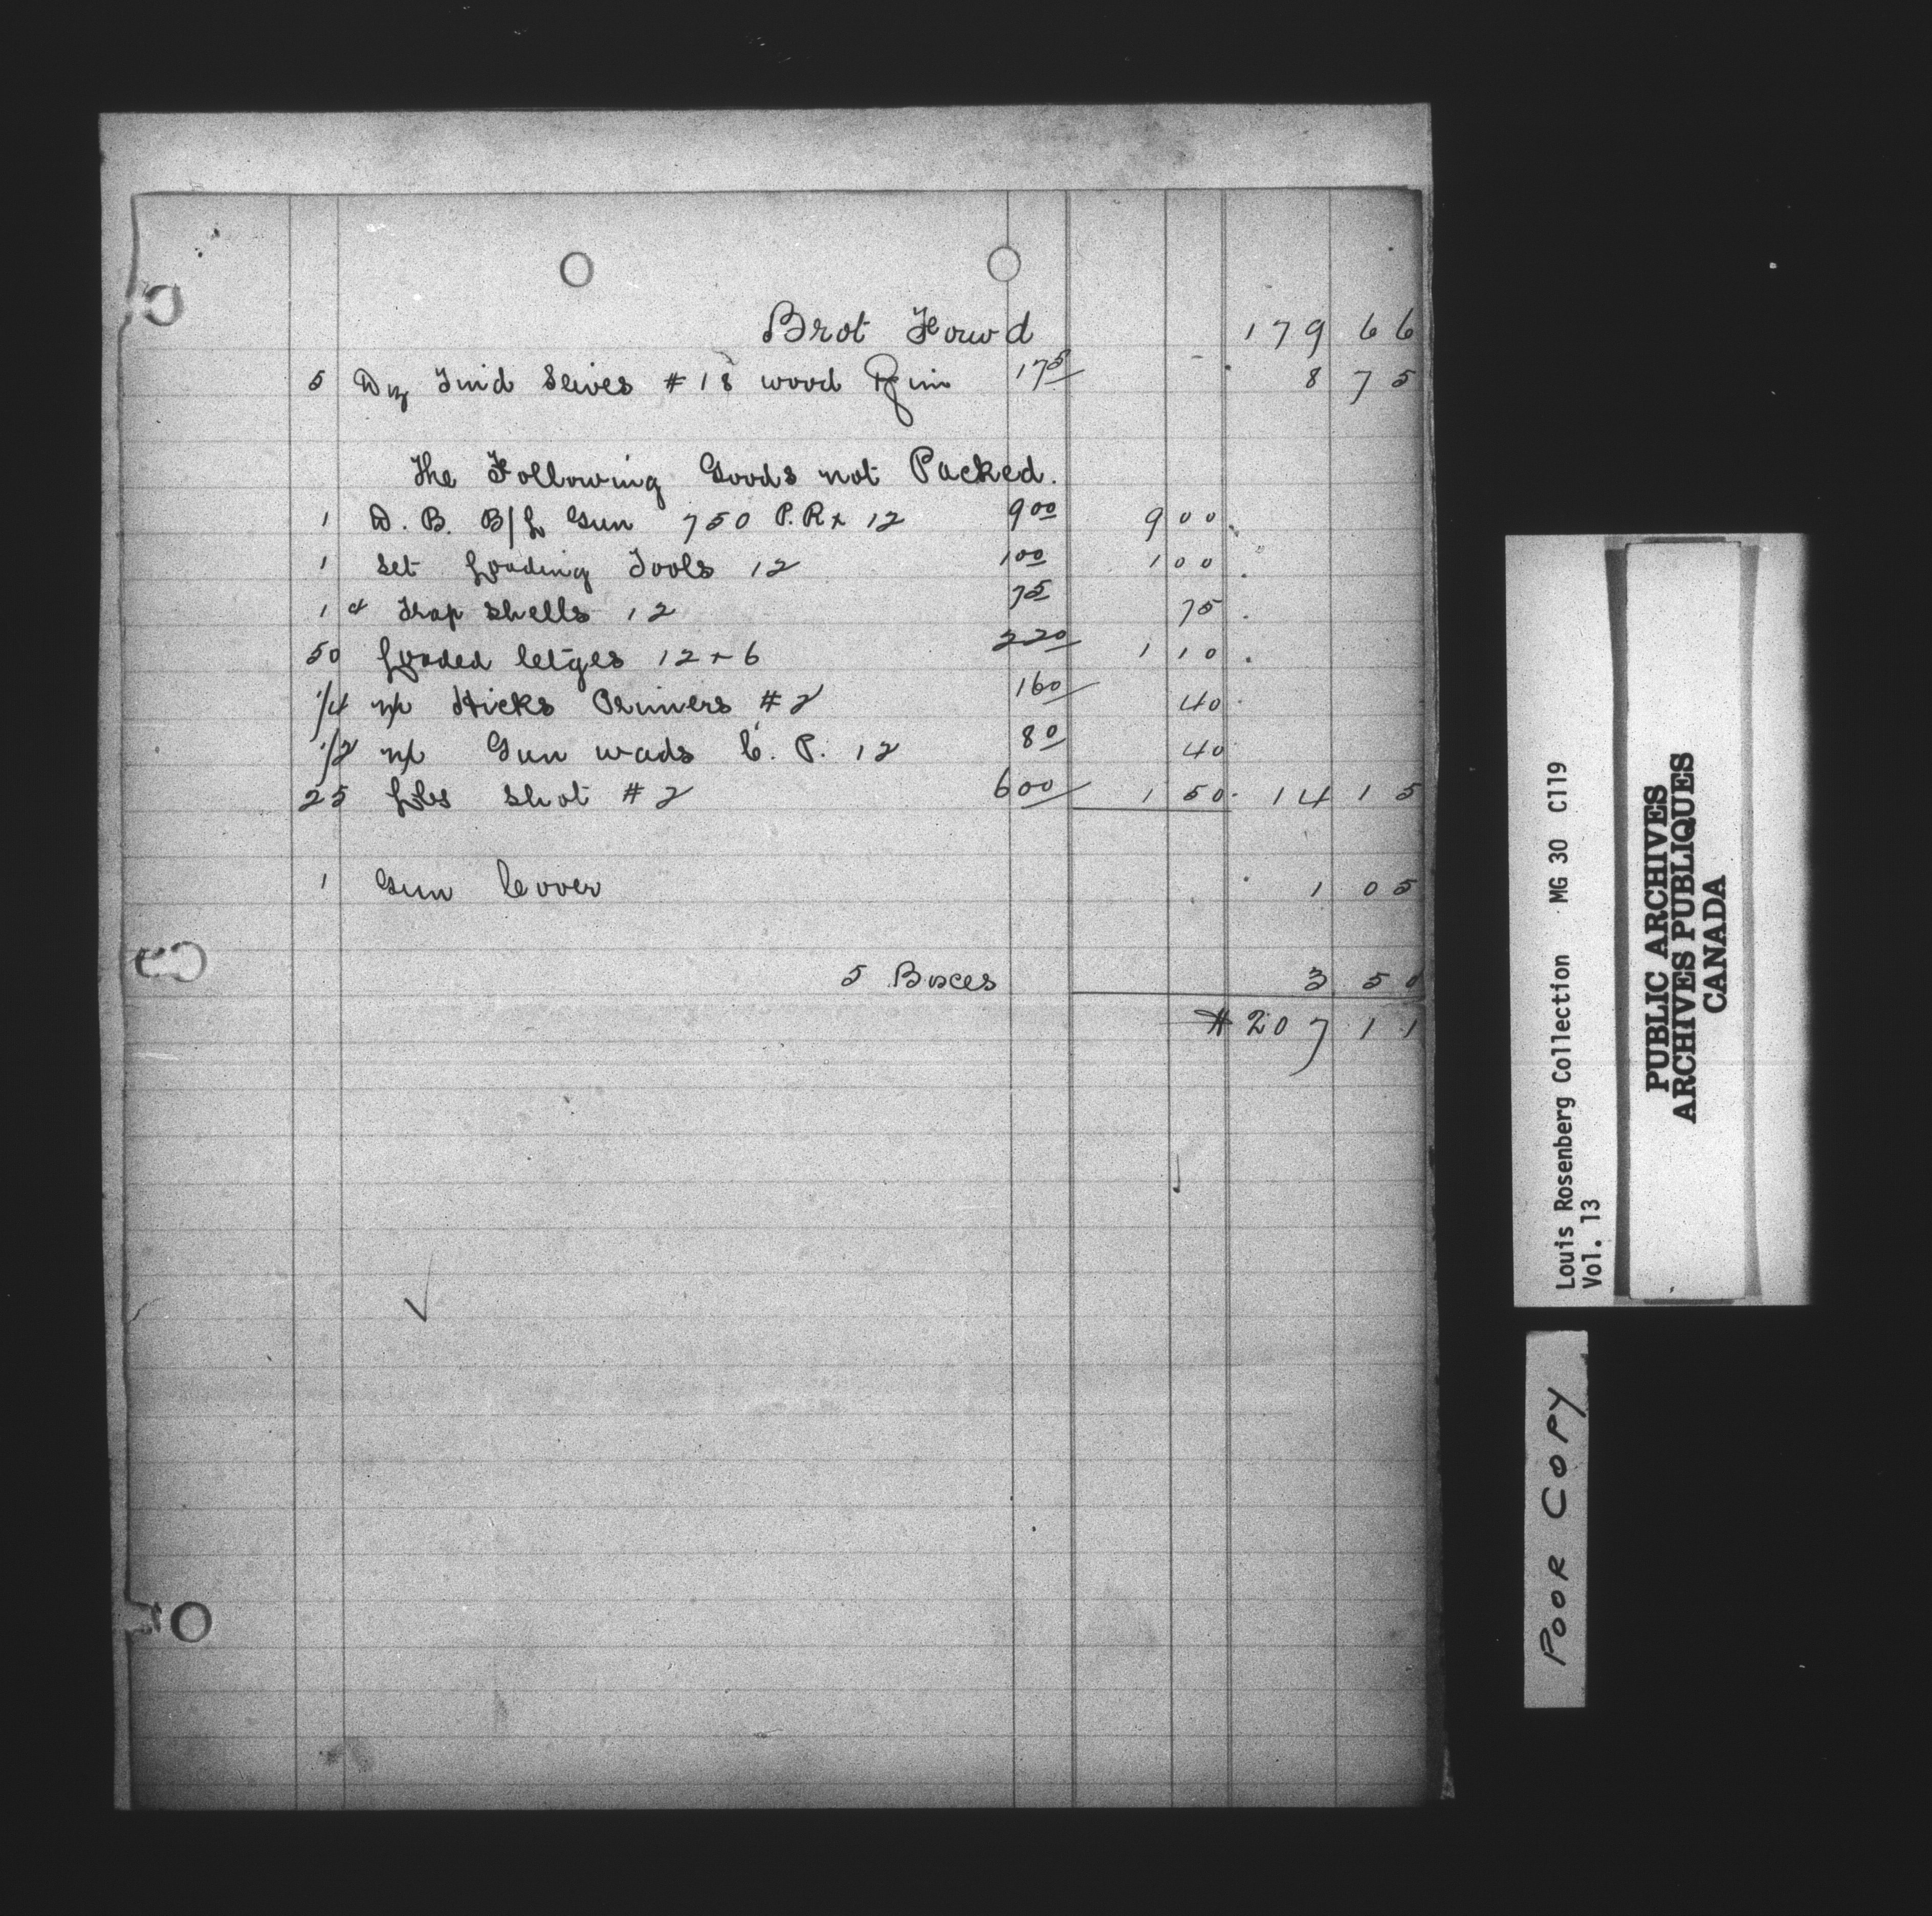 Brot Forw'd 179 66
5 Dz Tin'd Seives #18 wood Rim 1 75 8 75
The Following Goods not Packed.
1 D. B. B/L Gun 750 P.R x 12 9 00 9 00
1 set Loading Tools 12 1 00 1 00
1 " Trap shells 12 75 75
50 Loaded Cetges 12 x 6 2 20 1 10
1/4 m Hicks Primers #2 1 60 40
1/2 m Gun wads C. P. 12 80 40
25 Lbs shot #2 6 00 1 50 14 15
1 Gun Cover 1 05
5 Boxes 3 50
$207 11
Louis Rosenberg Collection MG 30 C119
Vol. 13
PUBLIC ARCHIVES
ARCHIVES PUBLIQUES
CANADA
POOR COPY